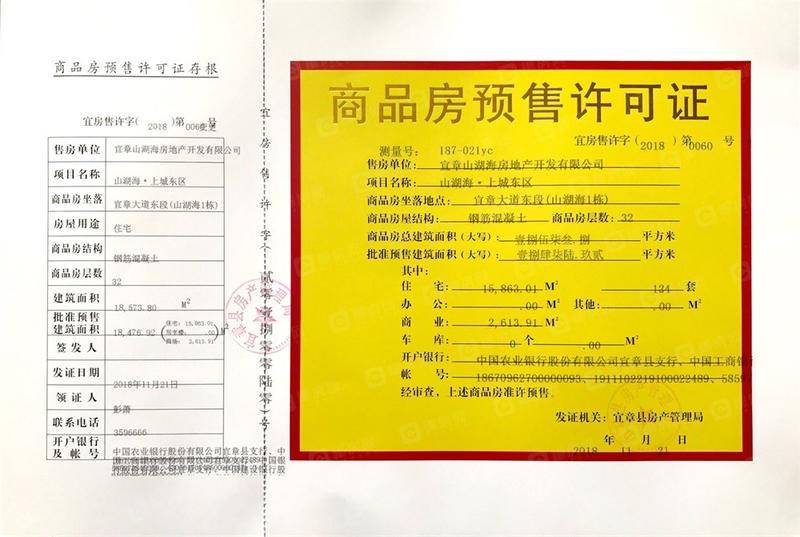 商品房预售许可证存根
宜房售许字( 2018 )第 006变更 号
售房单位 宜章山湖海房地产开发有限公司
项目名称 山湖海·上城东区
商品房坐落 宜章大道东段(山湖海1栋)
房屋用途 住宅
商品房结构 钢筋混凝土
商品房层数 32
建筑面积 18,573.80 M²
批准预售建筑面积 18,476.92 M²
住宅: 15,863.01
写字楼: .00
商场: 2,613.91
签发人
发证日期 2018年11月21日
领证人 彭萧
联系电话 3596666
开户银行及帐号 中国农业银行股份有限公司宜章县支行、
宜房售许字(贰零壹捌零零陆零)号
宜章县房产管理局
商品房预售许可证
宜房售许字( 2018 )第0060 号
测量号: 187-021yc
售房单位: 宜章山湖海房地产开发有限公司
项目名称: 山湖海·上城东区
商品房坐落地点: 宜章大道东段(山湖海1栋)
商品房屋结构: 钢筋混凝土 商品房层数: 32
商品房总建筑面积(大写): 壹捌伍柒叁.捌 平方米
批准预售建筑面积(大写): 壹捌肆柒陆.玖贰 平方米
其中:
住 宅: 15,863.01 M² 124 套
办 公: .00 M² 其他: .00 M²
商 业: 2,613.91 M²
车 库: 0 个 .00 M²
开户银行: 中国农业银行股份有限公司宜章县支行、中国工商银
帐 号: 18670962700000093、1911102219100022489、5859
经审查,上述商品房准许预售。
发证机关: 宜章县房产管理局
2018 年 11 月 21 日